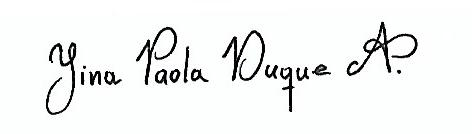 Yina Paola Duque A.